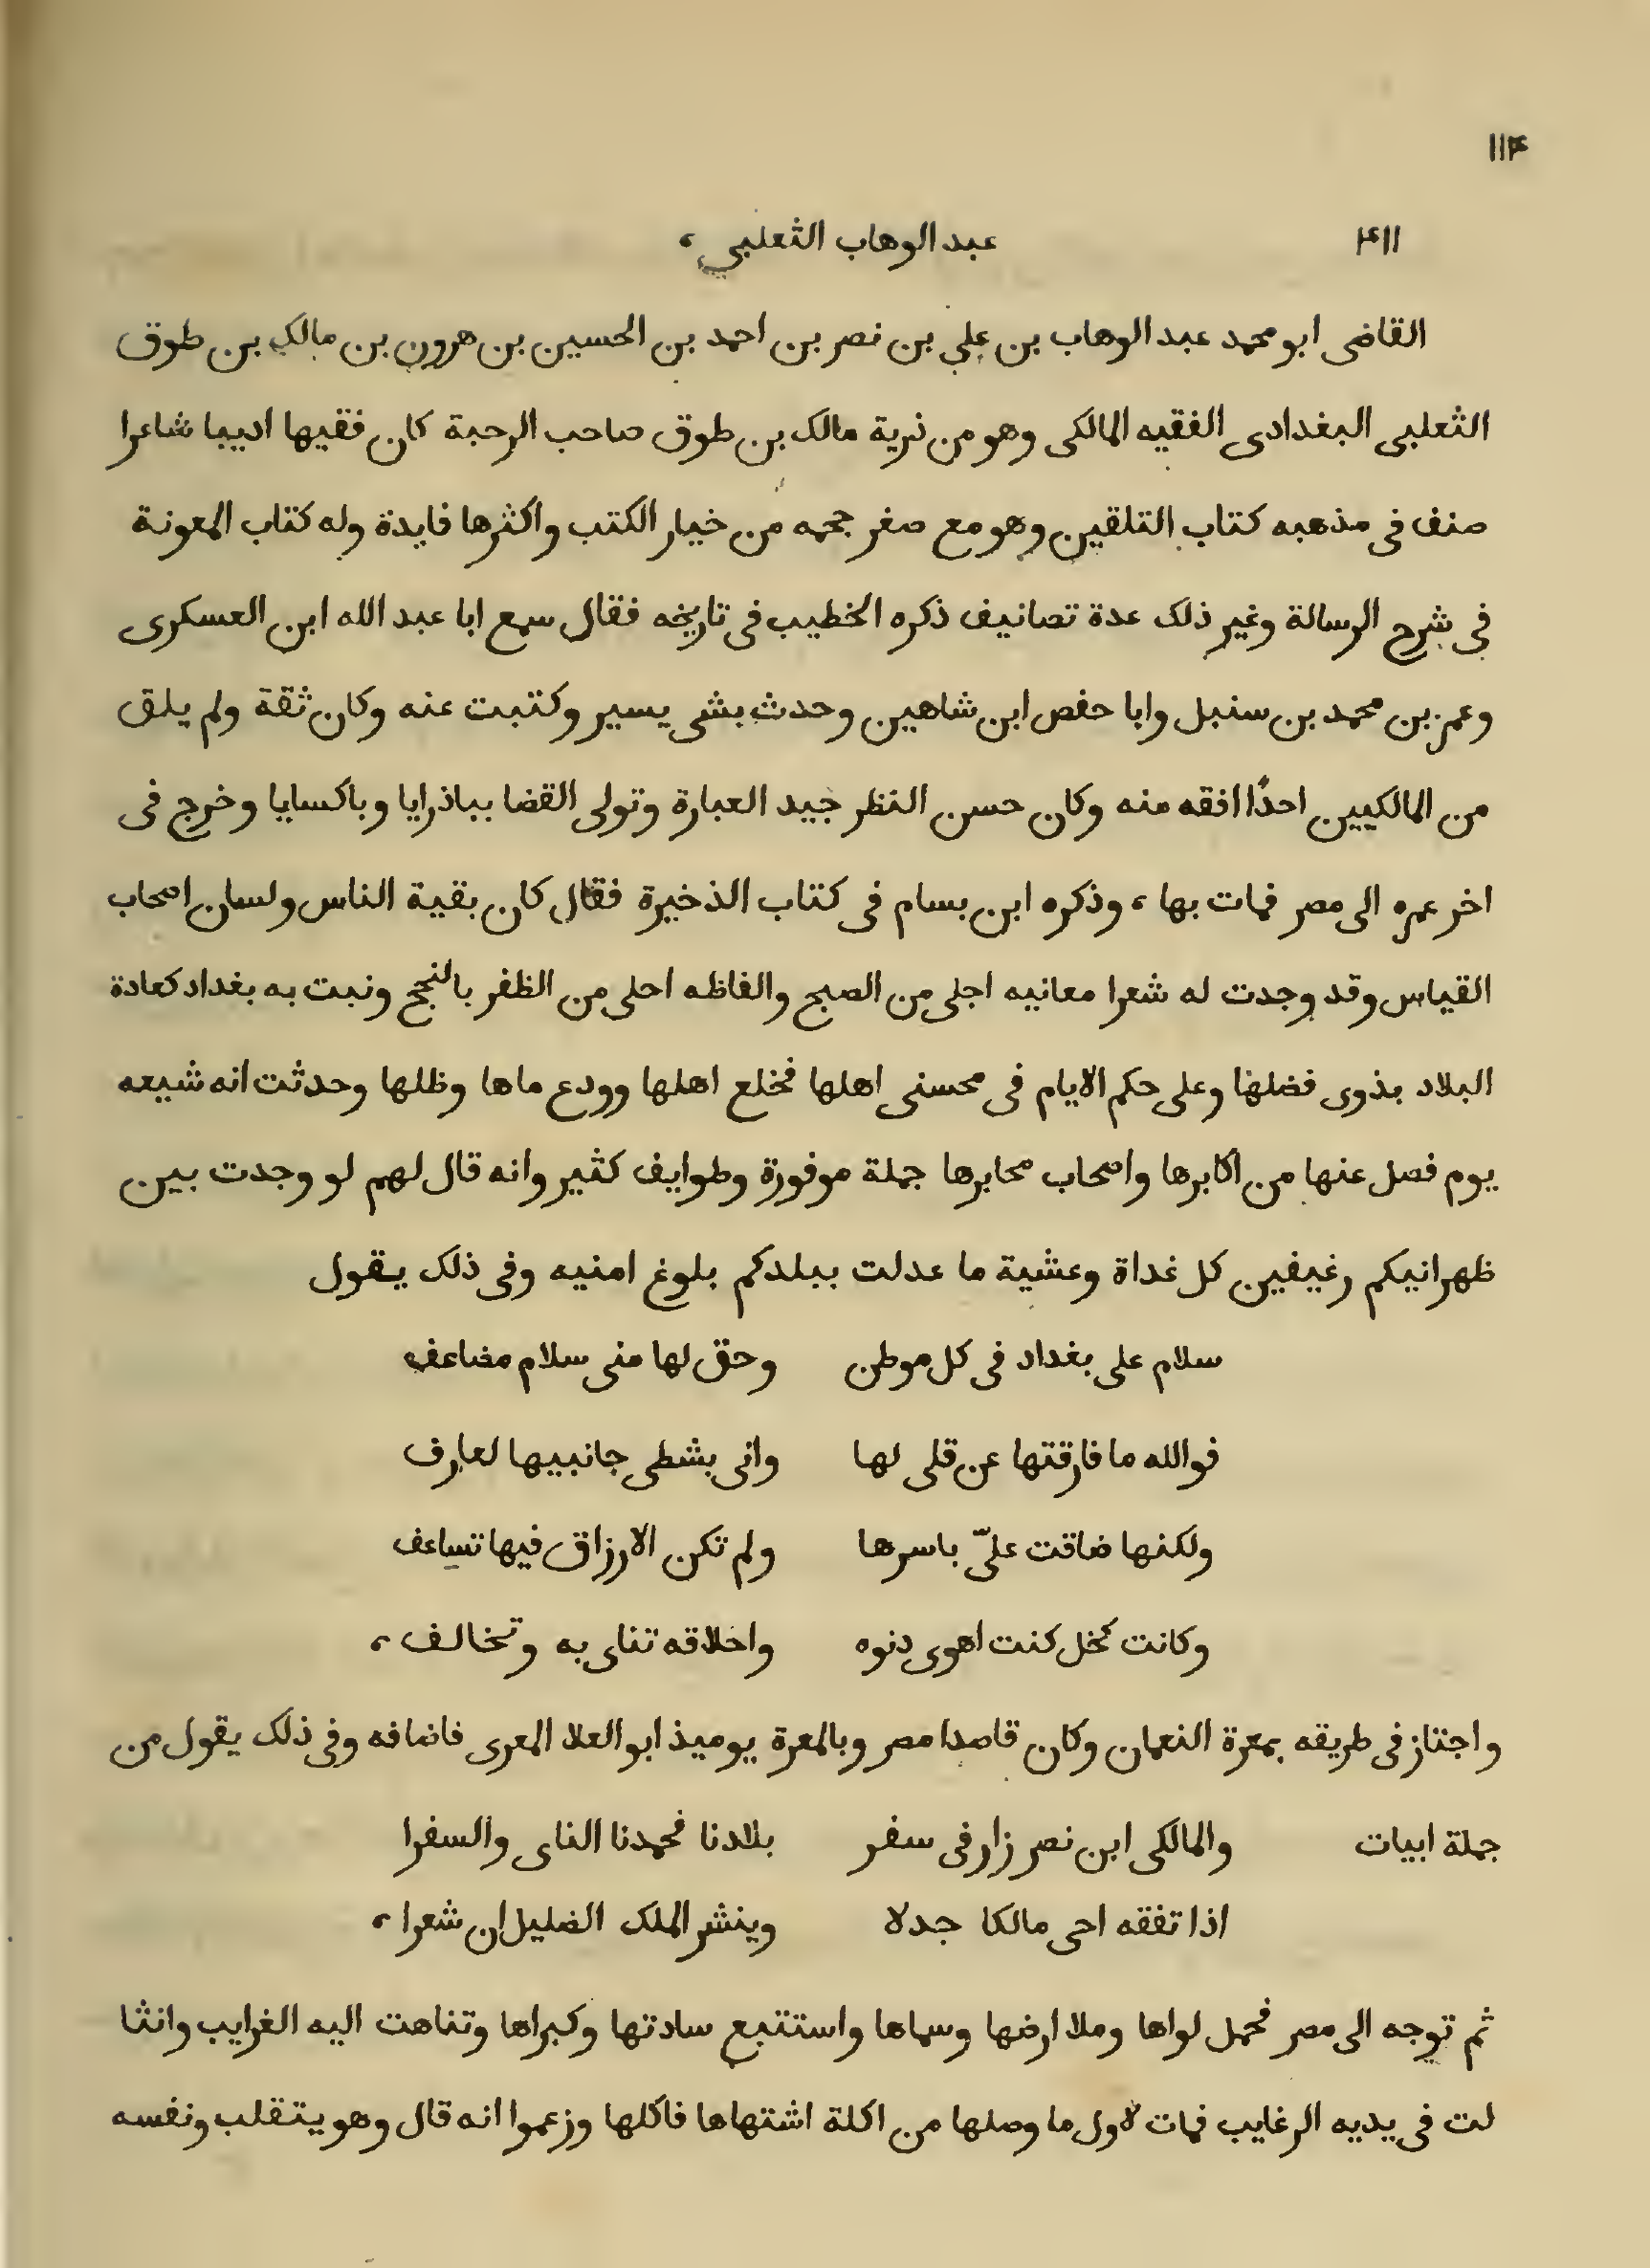 ١١۴
۴١١ عبد الوهاب الثعلبي ،
القاضى ابو محمد عبد الوهاب بن على بن نصر بن احمد بن الحسين بن هرون بن مالك بن طوق
الثعلبى البغدادى الفقيه المالكى وهو من ذرية مالك بن طوق صاحب الرحبة كان فقيها اديبا شاعرا
صنف فى مذهبه كتاب التلقين وهو مع صغر حجمه من خيار الكتب واكثرها فايدة وله كتاب المعونة
فى شرح الرسالة وغير ذلك عدة تصانيف ذكره الخطيب فى تاريخه فقال سمع ابا عبد الله ابن العسكرى
وعمر بن محمد بن سنبل وابا حفص ابن شاهين وحدث بشى يسير وكتبت عنه وكان ثقة ولم يلق
من المالكيين احدًا افقه منه وكان حسن النظر جيد العبارة وتولى القضا ببادرايا وباكسايا وخرج فى
اخر عمره الى مصر فمات بها ، وذكره ابن بسام فى كتاب الذخيرة فقال كان بقية الناس ولسان اصحاب
القياس وقد وجدت له شعرا معانيه اجلى من الصبح والفاظه احلى من الظفر بالنجح ونبت به بغداد كعادة
البلاد بذوى فضلها وعلى حكم الايام فى محسنى اهلها فخلع اهلها وودع ماها وظلها وحدثت انه شيعه
يوم فصل عنها من اكابرها واصحاب محابرها جملة موفورة وطوايف كثير وانه قال لهم لو وجدت بين
ظهرانيكم رغيفين كل غداة وعشية ما عدلت ببلدكم بلوغ امنيه وفى ذلك يقول
سلام على بغداد فى كل موطن وحق لها منى سلام مضاعف
فوالله ما فارقتها عن قلى لها وانى بشطى جانبيها لعارف
ولكنها ضاقت علىّ باسرها ولم تكن الارزاق فيها تساعف
وكانت كخل كنت اهوى دنوه واخلاقه تناى به وتخالف ،
واجتاز فى طريقه بمعرة النعمان وكان قاصدا مصر وبالمعرة يوميذ ابو العلا المعرى فاضافه وفى ذلك يقول من
جملة ابيات والمالكى ابن نصر زار فى سفر بلادنا فحمدنا الناى والسفرا
اذا تفقه احى مالكا جدلا وينشر الملك الضليل ان شعرا ،
ثم توجه الى مصر فحمل لواها وملا ارضها وسماها واستتبع سادتها وكبراها وتناهت اليه الغرايب وانثا
لت فى يديه الرغايب فمات لاول ما وصلها من اكلة اشتهاها فاكلها وزعموا انه قال وهو يتقلب ونفسه